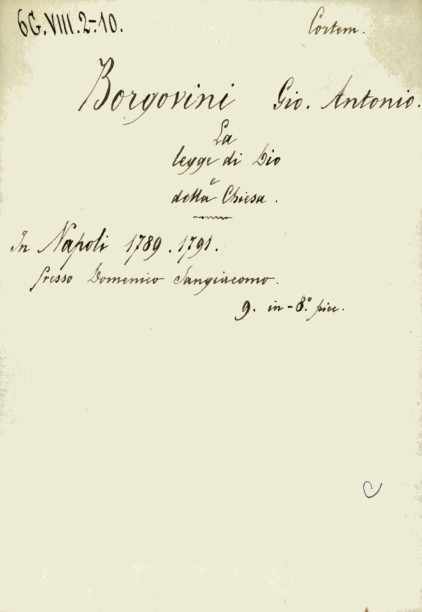 6G.VIII.2-10. Cortem.
Borgovini Gio. Antonio.
La
legge di Dio
e
della Chiesa.
In Napoli 1789.1791.
presso Domenico Sangiacomo.
9. in-8.º picc.
C